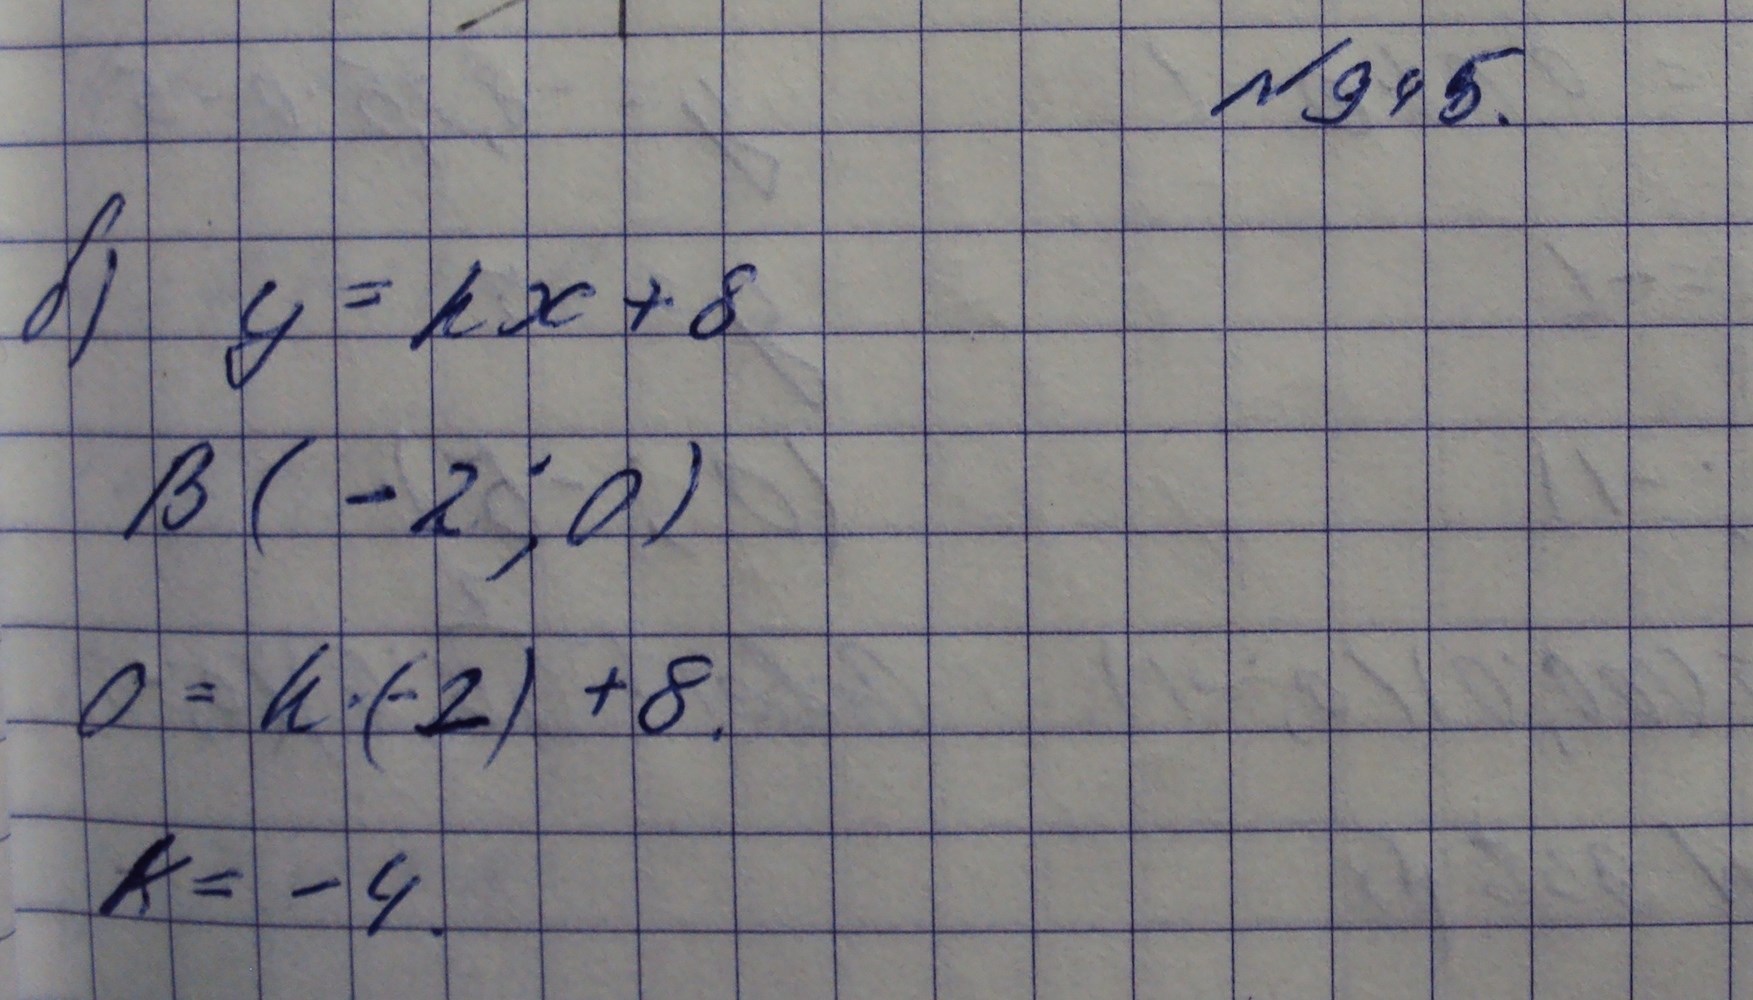 №945.
б) y = kx + 8
B(-2; 0)
0 = k·(-2) + 8.
k = -4.